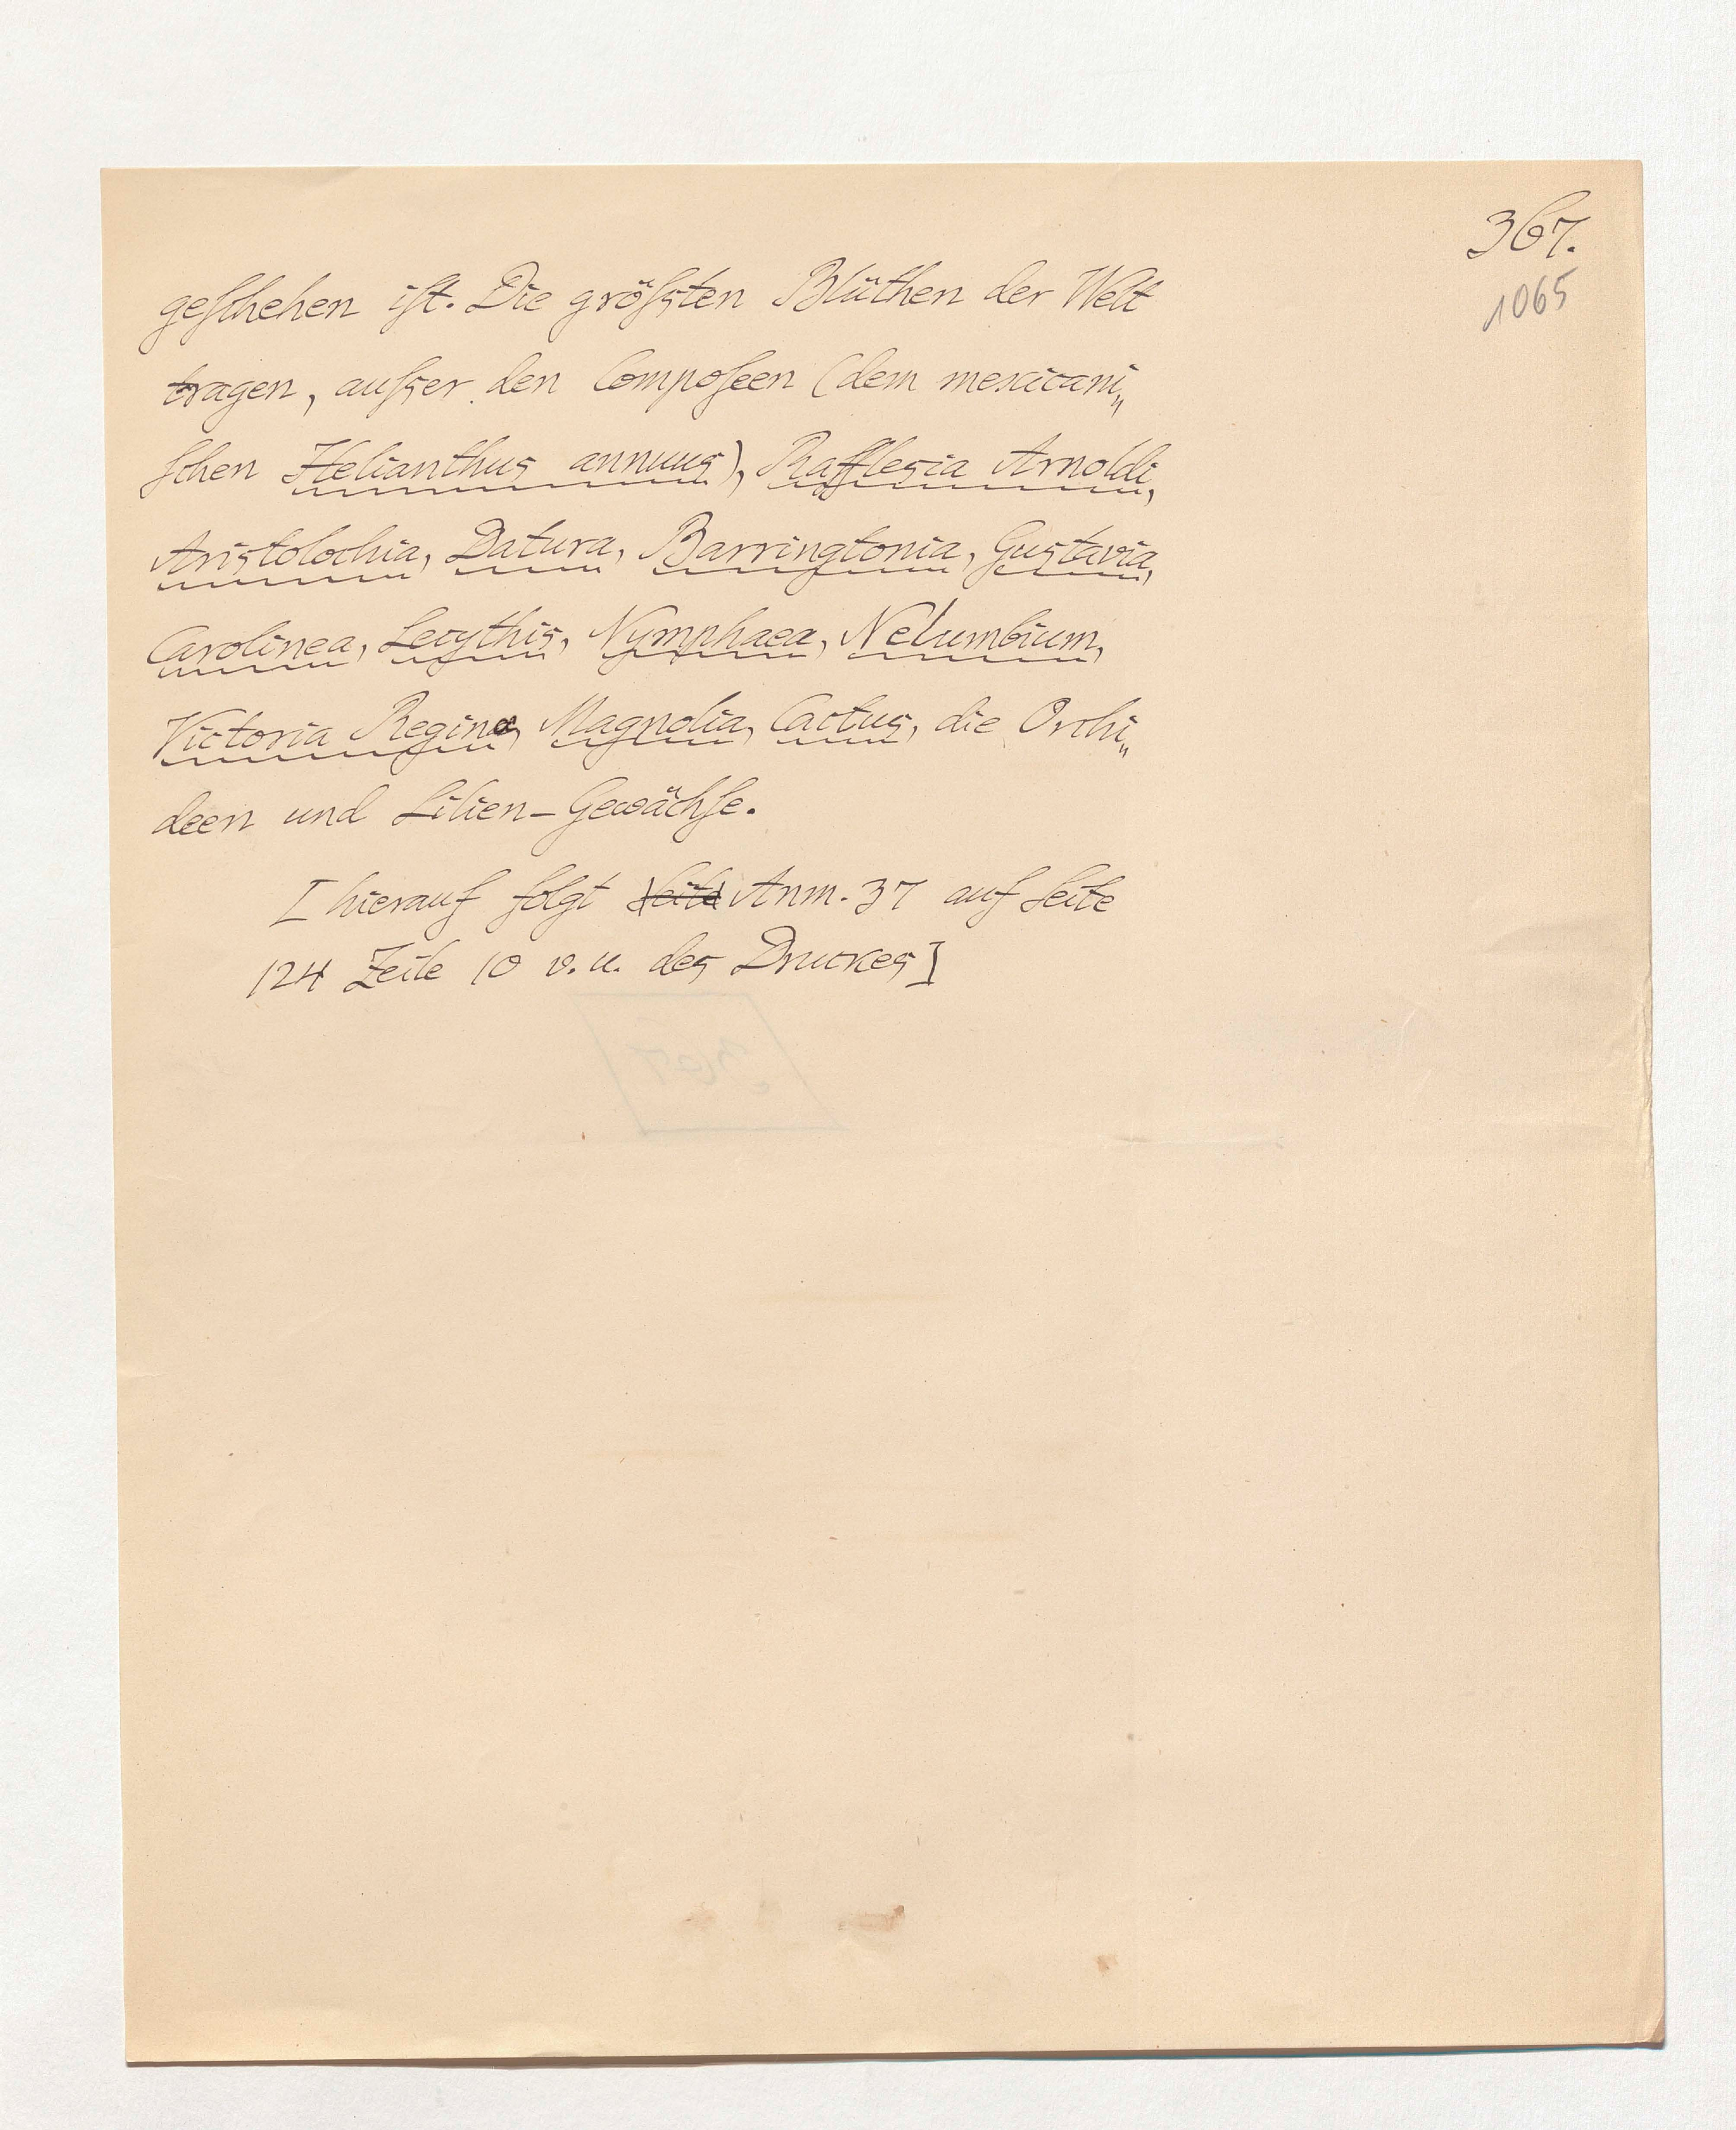 367.
1065
geſchehen iſt. Die gröſsten Blüthen der Welt
tragen, auſser den Compoſeen (dem mexicani„
ſchen Helianthus annuus), Rafflesia Arnoldi,
Aristolochia, Datura, Barringtonia, Gustavia,
Carolinea, Lecythis, Nymphaea, Nelumbium,
Victoria Regina, Magnolia, Cactus, die Orchi„
deen und Lilien-Gewächſe.
[hierauf folgt Seite Anm. 37 auf Seite
124 Zeile 10 v. u. des Druckes]
367